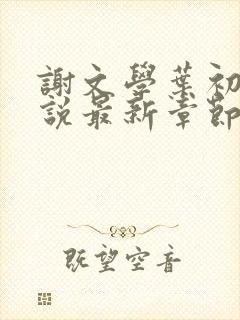 謝文學葉初
說最新章節
既望空音